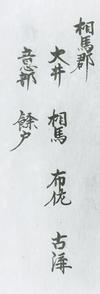 相馬郡
大井 相馬 布佐 古溝
意部 餘戸